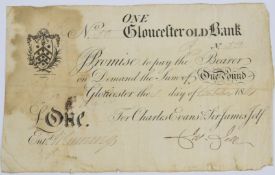 ONE
No Gloucester OLD Bank
No
I Promise to pay the Bearer
on Demand the Sum of One Pound
Gloucester the day of 18
£One. For Charles Evans & James Jelf
Entd